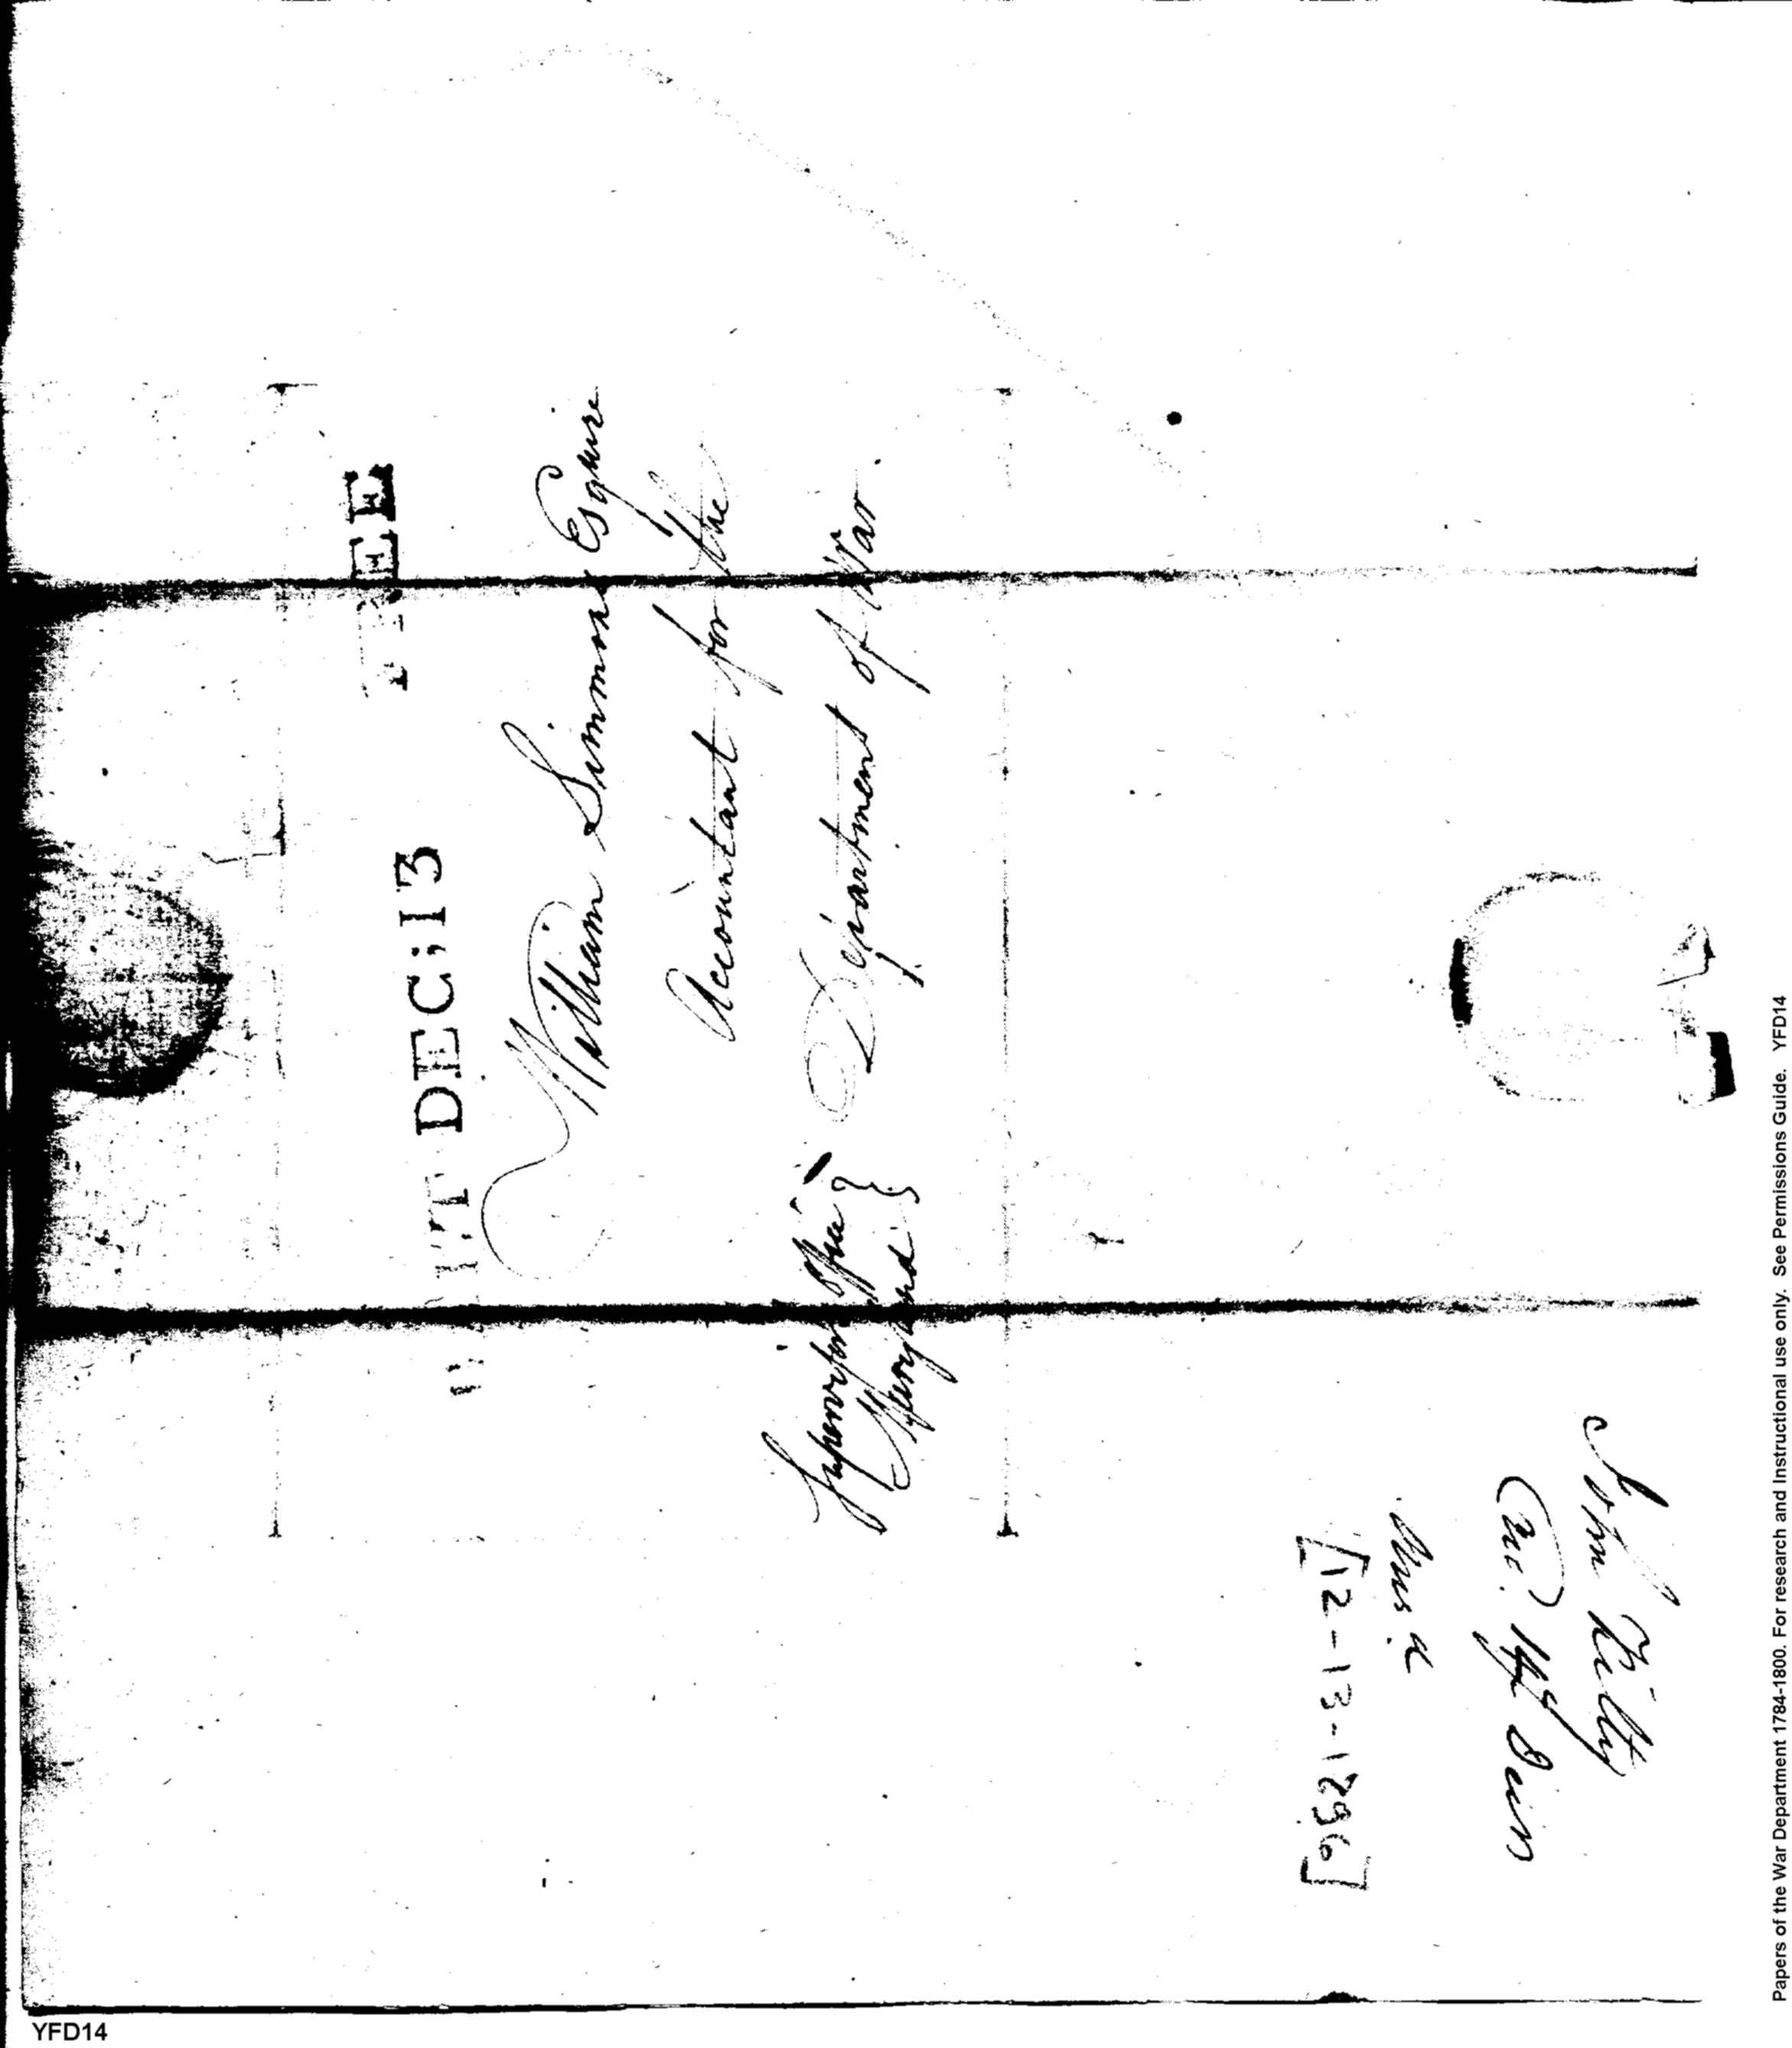 FREE
DEC: 13
William Simmons Esquire
Accountant for the
Department of War.
Supervisors Office
Maryland
John Kilty
Ansd
[12-13-1796]
YFD14
Papers of the War Department 1784-1800. For research and Instructional use only. See Permissions Guide. YFD14